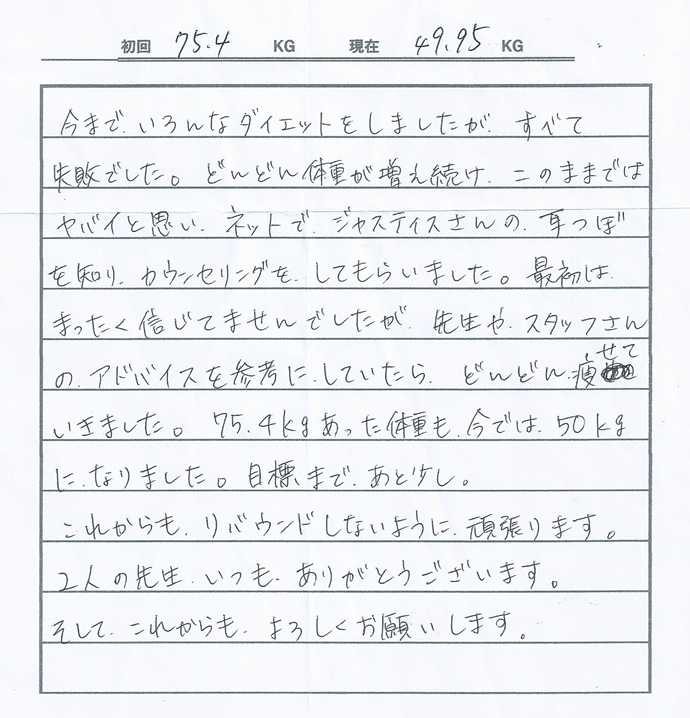 初回 75.4 KG 現在 49.95 KG
今まで、いろんなダイエットをしましたが、すべて
失敗でした。どんどん体重が増え続け、このままでは
ヤバイと思い、ネットで、ジャスティスさんの、耳つぼ
を知り、カウンセリングを、してもらいました。最初は、
まったく信じてませんでしたが、先生や、スタッフさん
の、アドバイスを参考に、していたら、どんどん痩せて
いきました。75.4kgあった体重も、今では、50kg
に、なりました。目標まで、あと少し。
これからも、リバウンドしないように、頑張ります。
2人の先生、いつも、ありがとうございます。
そして、これからも、よろしくお願いします。